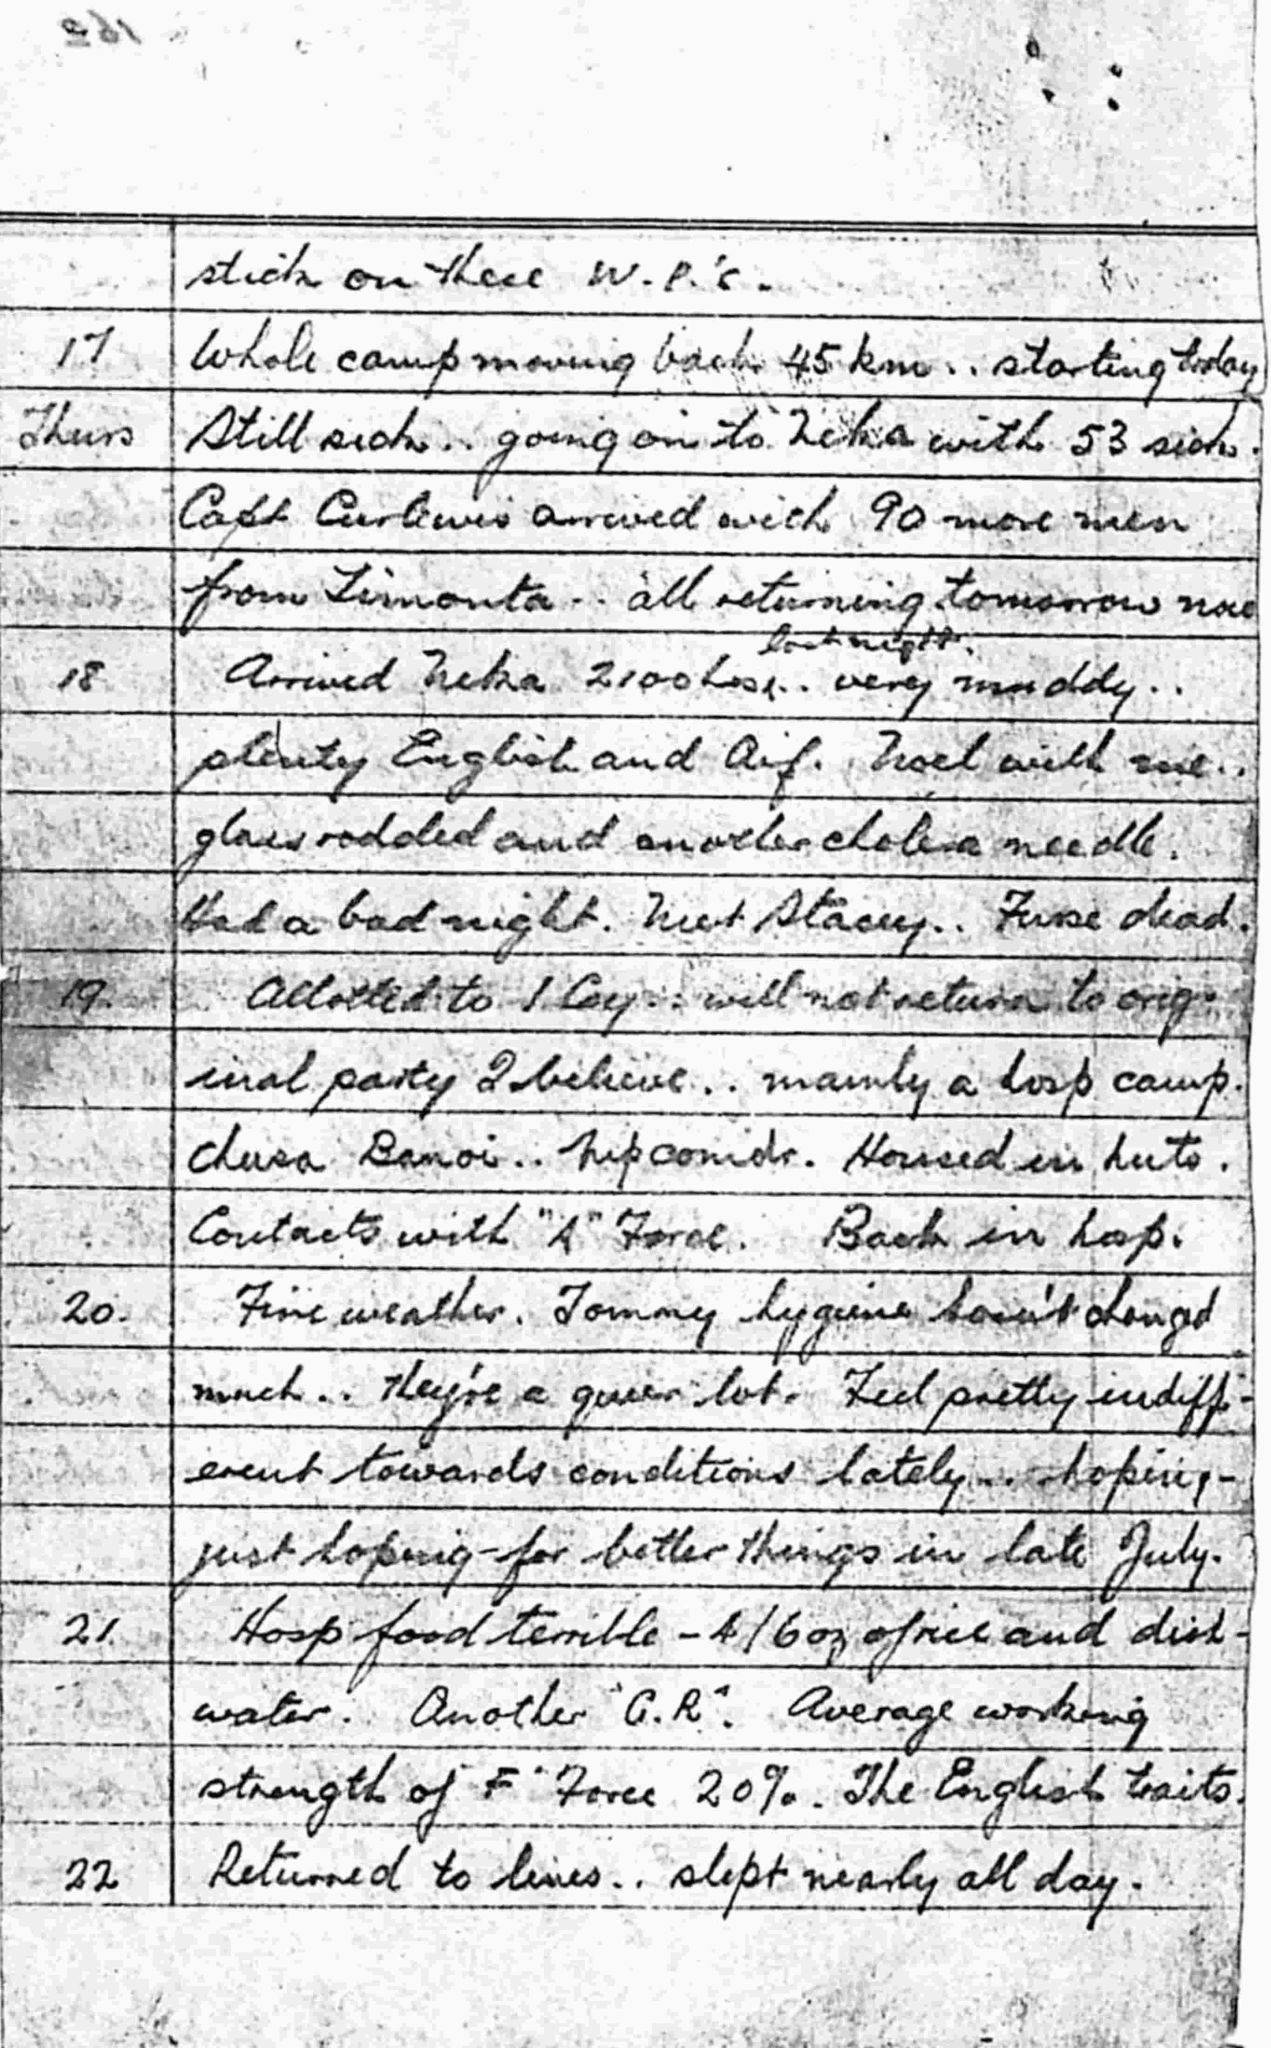 162
stick on these W.P.'s.
17 Whole camp moving back 45 km.. starting today
Thurs Still sick.. going on to Neka with 53 sick.
Capt Curlewis arrived with 90 more men
from Timonta.. all returning tomorrow
last night.
18 Arrived Neka 2100 hrs.. very muddy..
plenty English and Aif. Noel with me..
glass rodded and another cholera needle.
Had a bad night. Met Stacey.. Furse dead.
19. Allotted to 1 Coy.. will not return to orig-
inal party I believe.. mainly a hosp camp.
Banoi.. Nip comdr. Housed in huts.
Contacts with "A" Force. Back in hosp.
20. Fine weather. Tommy hygiene hasn't changed
much.. they're a queer lot. Feel pretty indiff-
erent towards conditions lately... hoping-
just hoping-for better things in late July.
21. Hosp food terrible - 4/6 oz of rice and dish-
water. Another "G.R". Average working
strength of "F" Force 20%. The English traits.
22 Returned to lines.. slept nearly all day.